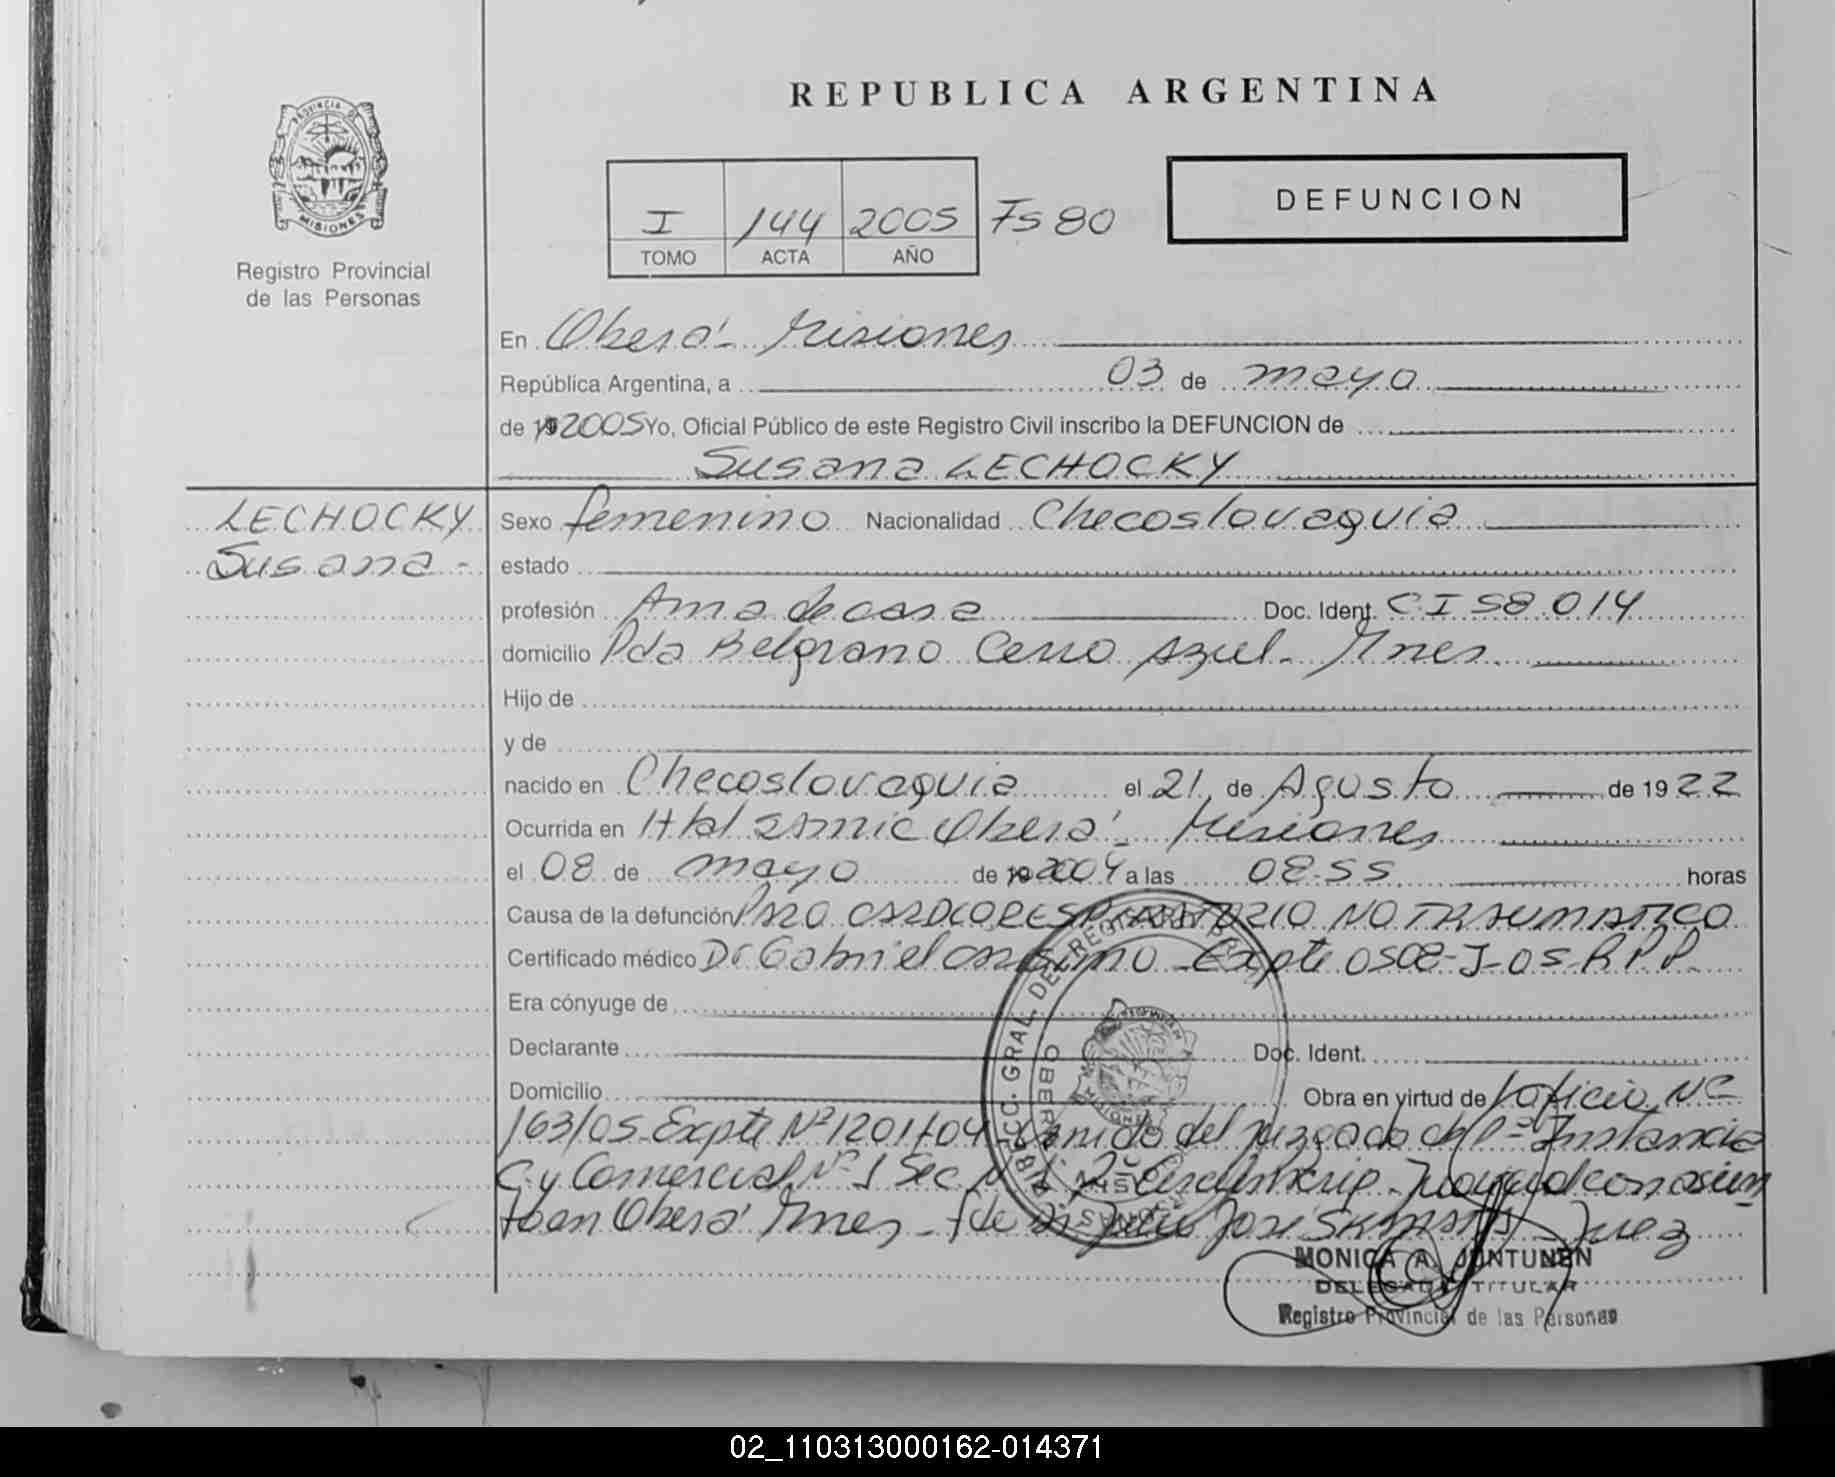 REPUBLICA ARGENTINA
PROVINCIA DE MISIONES
Registro Provincial
de las Personas
I 144 2005 Fs 80
TOMO ACTA AÑO
DEFUNCION
En Oberá - Misiones
República Argentina, a 03 de mayo
de 19 2005 Yo, Oficial Público de este Registro Civil inscribo la DEFUNCION de
Susana LECHOCKY
LECHOCKY
Susana -
Sexo femenino Nacionalidad Checoslovaquia
estado
profesión Ama de casa Doc. Ident. C I 58.014
domicilio Pda Belgrano Cerro Azul - Mnes.
Hijo de
y de
nacido en Checoslovaquia el 21 de Agusto de 1922
Ocurrida en Htal SAMIC Oberá - Misiones
el 08 de mayo de 19 2004 a las 08.55 horas
Causa de la defunción PARO CARDIORESPIRATORIO NO TRAUMATICO
Certificado médico Dr Gabriel - Expte 0508-J-05-R.P.P.
Era cónyuge de
Declarante Doc. Ident.
Domicilio Obra en virtud de oficio Nº
163/05 - Expte Nº 1201/04 del juzgado de 1ª Instancia
C. y Comercial Nº 1 Sec Nº 1 2ª
Oberá Mnes - José Juez
MONICA A. JUNTUNEN
DELEGADA TITULAR
Registro Provincial de las Personas
02_110313000162-014371